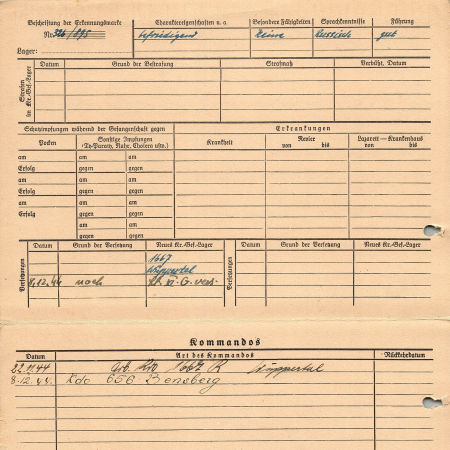 Beschriftung der Erkennungsmarke Charaktereigenschaften u. a. Besondere Fähigkeiten Sprachkenntnisse Führung
Nr. 326/895 befriedigend Keine Russisch gut
Lager:
Strafen im Kr.-Gef.-Lager Datum Grund der Bestrafung Strafmaß Verbüßt, Datum
Schutzimpfungen während der Gefangenschaft gegen Erkrankungen
Pocken Sonstige Impfungen (Ty-Paraty, Ruhr, Cholera usw.) Krankheit Revier von bis Lazarett — Krankenhaus von bis
am am am
Erfolg gegen gegen
am am am
Erfolg gegen gegen
am am am
Erfolg gegen gegen
am am
gegen gegen
Versetzungen Datum Grund der Versetzung Neues Kr.-Gef.-Lager Versetzungen Datum Grund der Versetzung Neues Kr.-Gef.-Lager
1667
Wuppertal
8.12.44 nach VI-G vers.
Kommandos
Datum Art des Kommandos Rückkehrdatum
22.11.44 Arb. Kdo 1667 R Wuppertal
8.12.44. Kdo 656 Bensberg